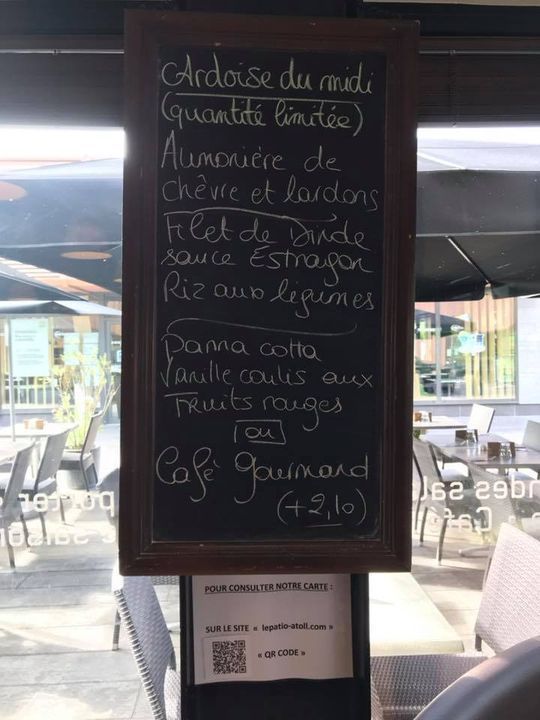 Ardoise du midi
(quantité limitée)
Aumonière de
chèvre et lardons
Filet de Dinde
sauce Estragon
Riz aux légumes
Panna cotta
Vanille coulis aux
Fruits rouges
ou
Café Gourmand
(+2,10)
POUR CONSULTER NOTRE CARTE :
SUR LE SITE « lepatio-atoll.com »
« QR CODE »